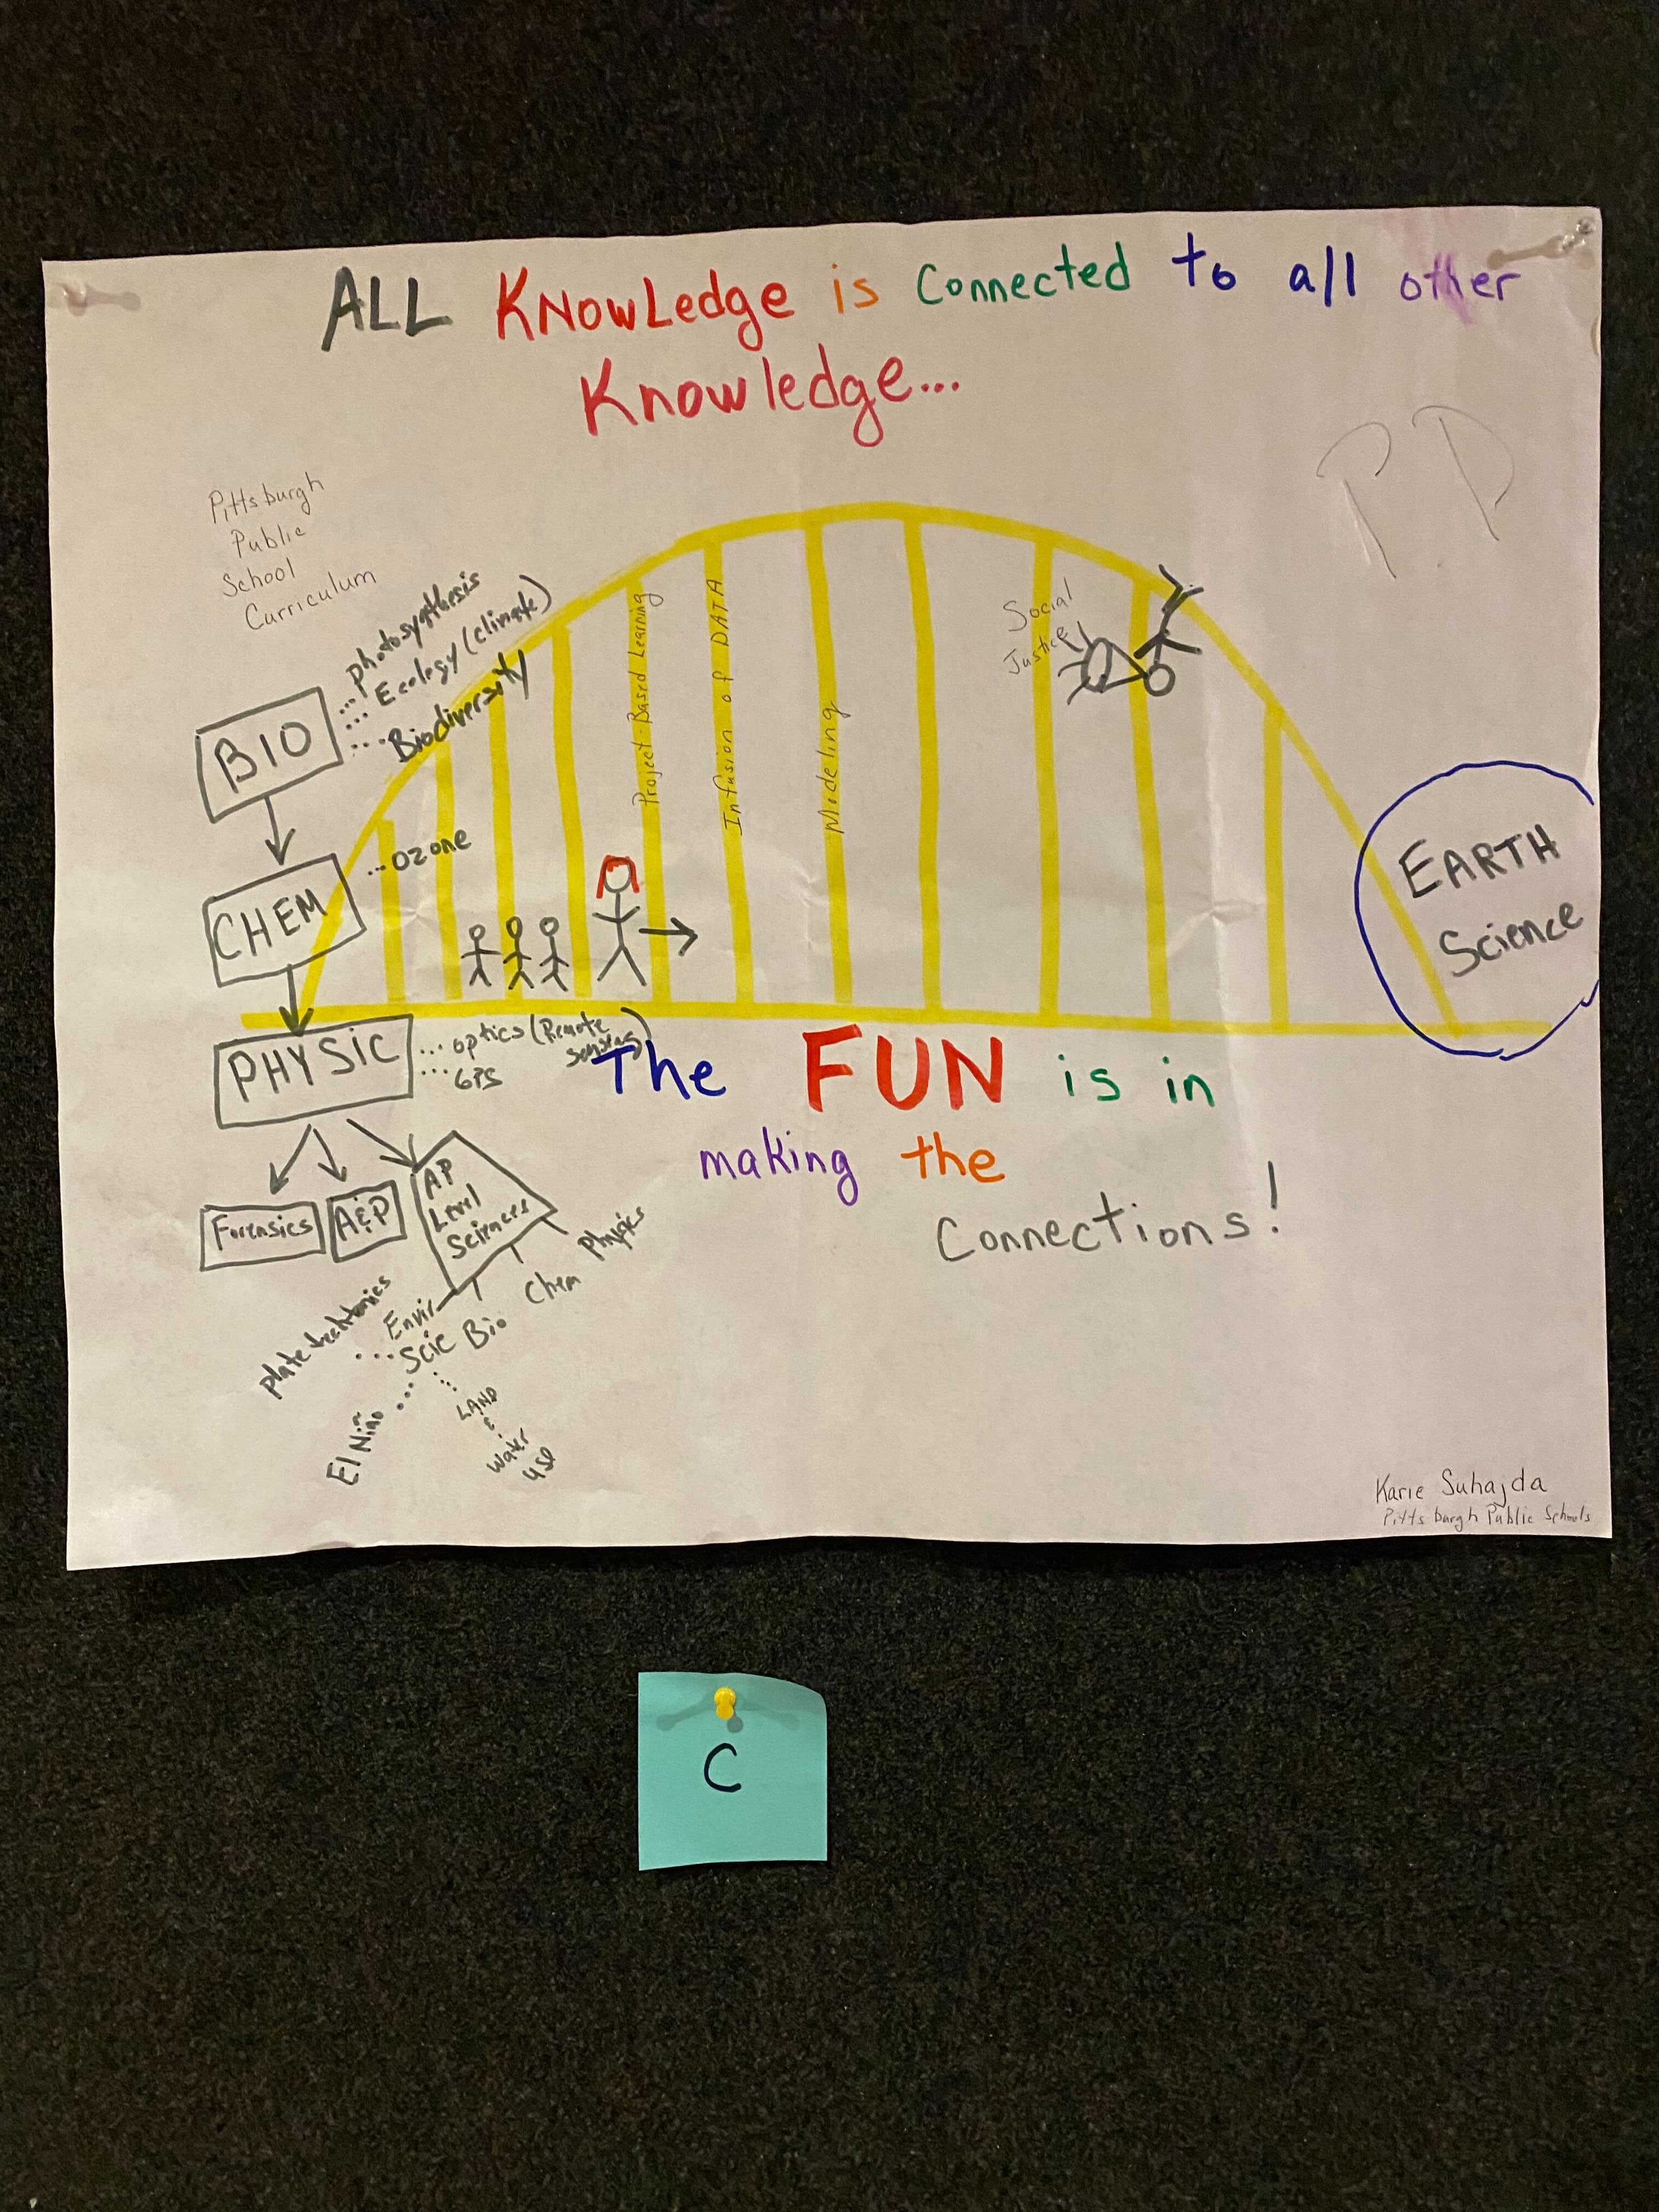 ALL KNowLedge is Connected to all other
Knowledge...
PD
Pittsburgh
Public
School
Curriculum
BIO
... Photosythesis
... Ecology (climate)
... Biodiversity
CHEM
... Ozone
PHYSIC
... optics (Remote
Sensing)
... GPS
Forensics
A&P
AP
Level
Sciences
Physics
Chem
Bio
Envir
Scie
... plate tecktonics
... El Niño
... LAND
&
Water
use
Project-Based Learning
Infusion of DATA
Modeling
Social
Justice
EARTH
Science
The FUN is in
making the
Connections!
Karie Suhajda
Pittsburgh Public Schools
C